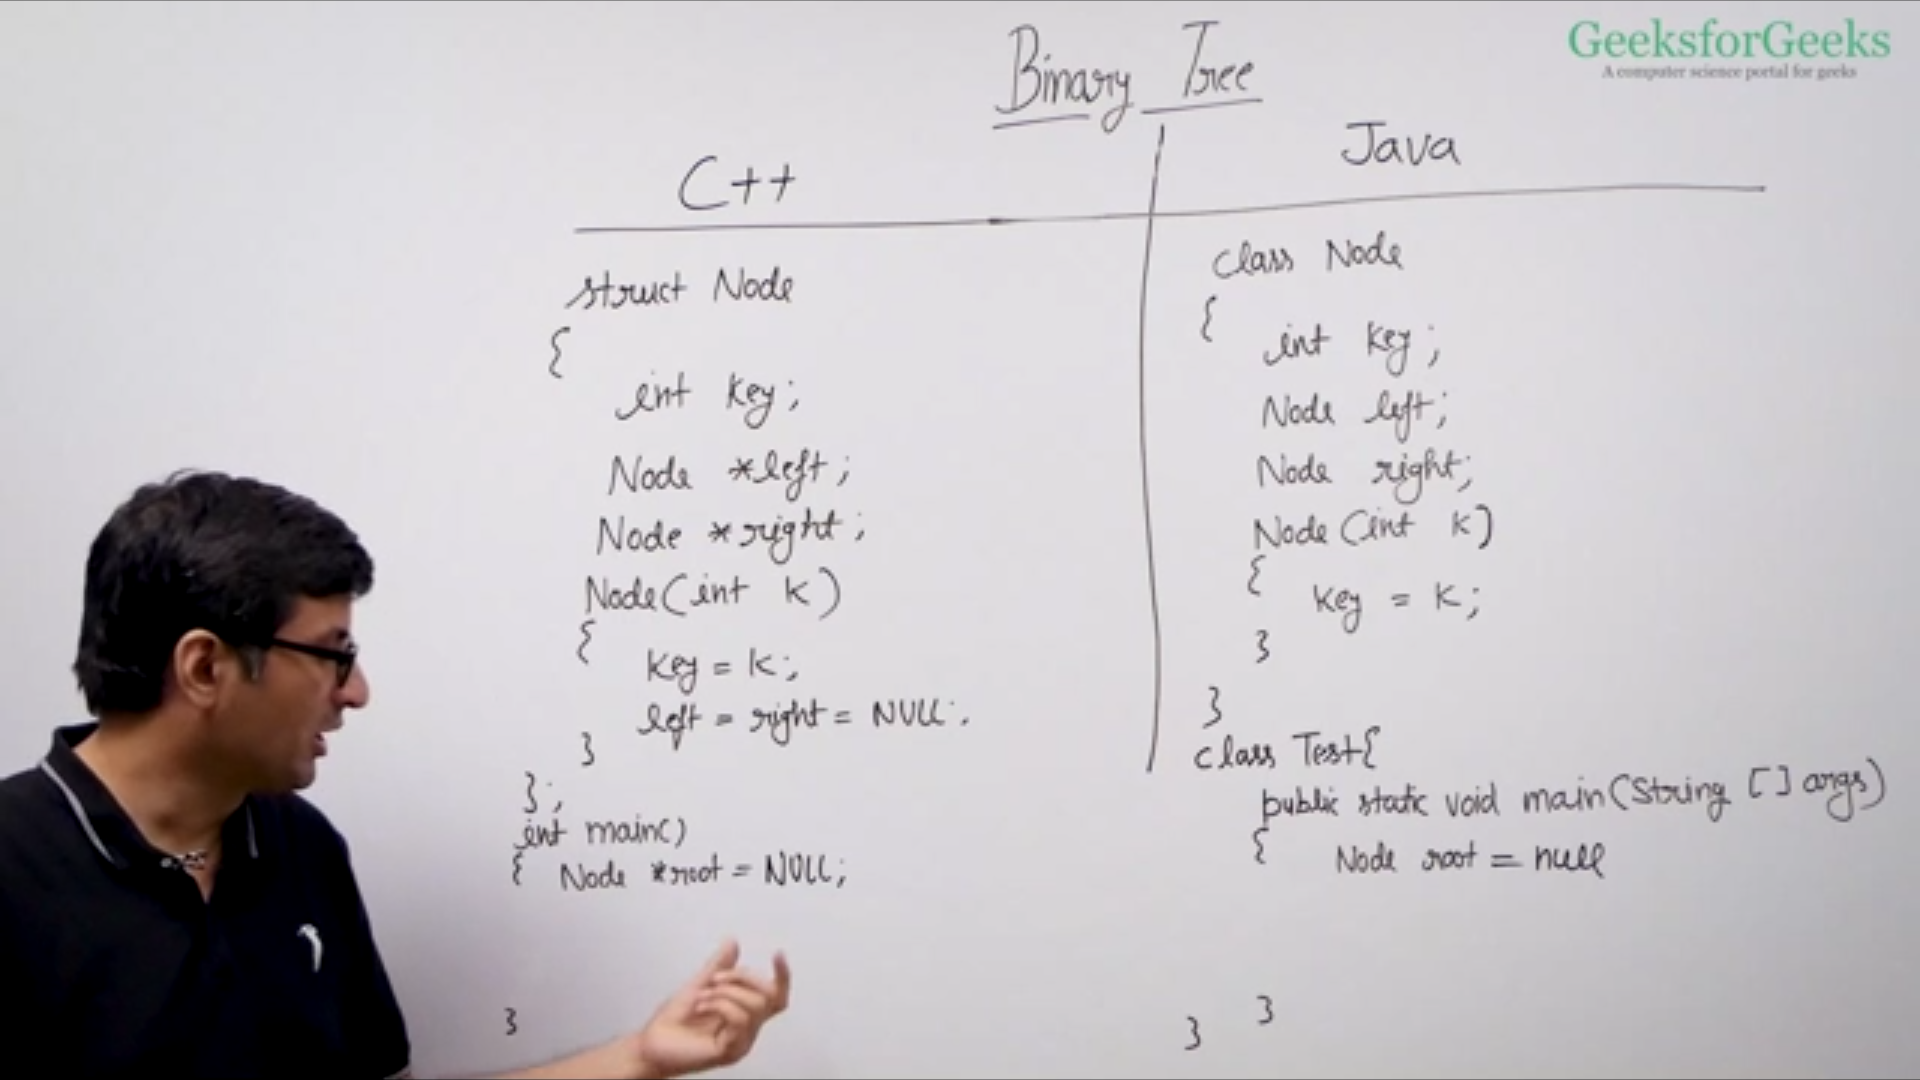 GeeksforGeeks
A computer science portal for geeks
Binary Tree
C++
struct Node
{
int key;
Node *left;
Node *right;
Node(int k)
{
key = k;
left = right = NULL;
}
};
int main()
{ Node *root = NULL;
}
Java
class Node
{
int key;
Node left;
Node right;
Node(int k)
{
key = k;
}
}
class Test{
public static void main(String [] args)
{ Node root = null
}
}